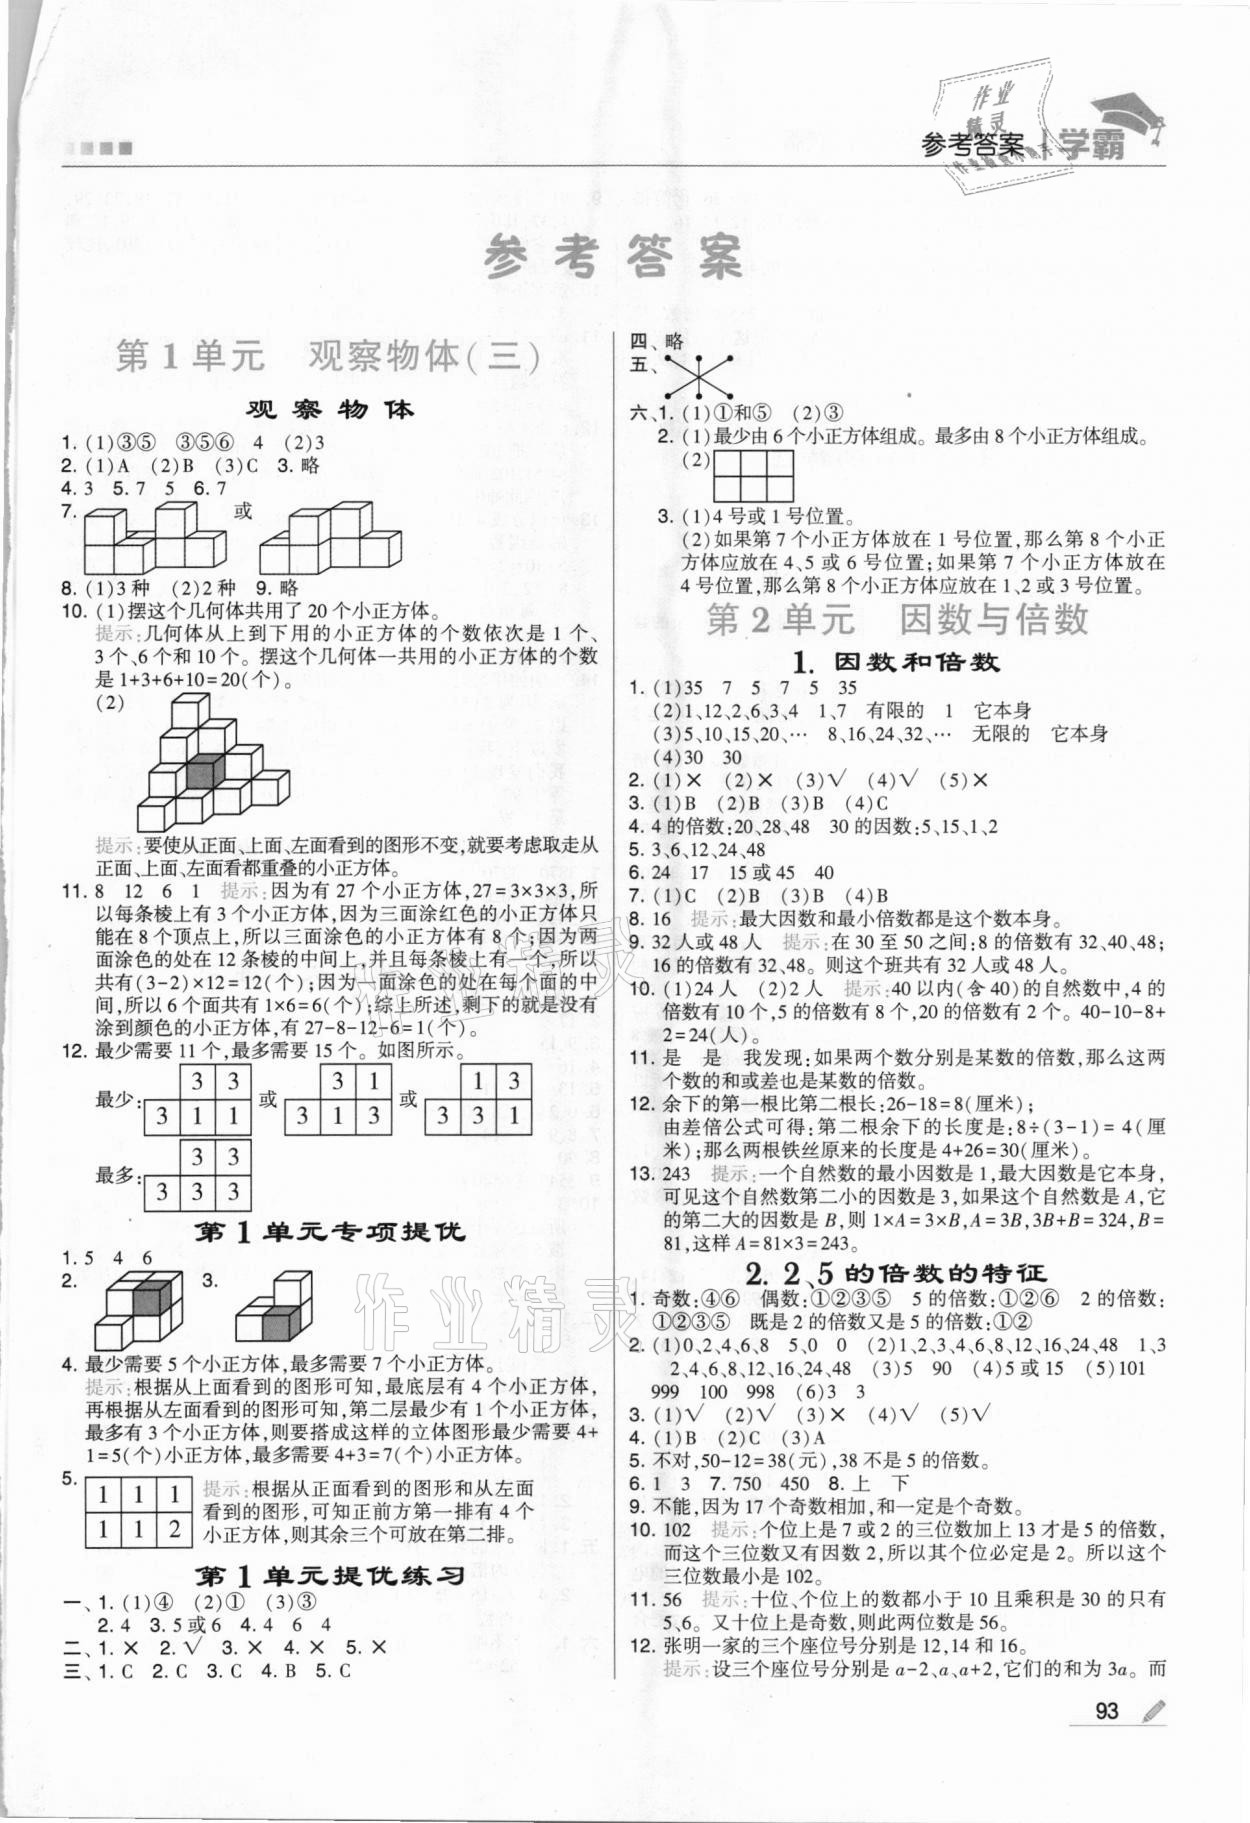 参考答案 学霸
作业
精灵
参考答案
第1单元 观察物体(三)
观察物体
1. (1)③⑤ ③⑤⑥ 4 (2)3
2. (1)A (2)B (3)C 3. 略
4. 3 5. 7 5 6. 7
7. 或
8. (1)3种 (2)2种 9. 略
10. (1)摆这个几何体共用了20个小正方体。
提示:几何体从上到下用的小正方体的个数依次是1个、
3个、6个和10个。摆这个几何体一共用的小正方体的个数
是1+3+6+10=20(个)。
(2)
提示:要使从正面、上面、左面看到的图形不变,就要考虑取走从
正面、上面、左面看都重叠的小正方体。
11. 8 12 6 1 提示:因为有27个小正方体,27=3×3×3,所
以每条棱上有3个小正方体,因为三面涂红色的小正方体只
能在8个顶点上,所以三面涂色的小正方体有8个;因为两
面涂色的处在12条棱的中间上,并且每条棱上有一个,所以
共有(3-2)×12=12(个);因为一面涂色的处在每个面的中
间,所以6个面共有1×6=6(个);综上所述,剩下的就是没有
涂到颜色的小正方体,有27-8-12-6=1(个)。
12. 最少需要11个,最多需要15个。如图所示。
3 3 3 1 1 3
最少: 3 1 1 或 3 1 3 或 3 3 1
3 3
最多: 3 3 3
第1单元专项提优
1. 5 4 6
2. 3.
4. 最少需要5个小正方体,最多需要7个小正方体。
提示:根据从上面看到的图形可知,最底层有4个小正方体,
再根据从左面看到的图形可知,第二层最少有1个小正方体,
最多有3个小正方体,则要搭成这样的立体图形最少需要4+
1=5(个)小正方体,最多需要4+3=7(个)小正方体。
5. 1 1 1 提示:根据从正面看到的图形和从左面
看到的图形,可知正前方第一排有4个
1 1 2 小正方体,则其余三个可放在第二排。
第1单元提优练习
一、1. (1)④ (2)① (3)③
2. 4 3. 5或6 4. 4 6 4
二、1. × 2. √ 3. × 4. × 5. ×
三、1. C 2. C 3. C 4. B 5. C
四、略
五、
六、1. (1)①和⑤ (2)③
2. (1)最少由6个小正方体组成。最多由8个小正方体组成。
(2)
3. (1)4号或1号位置。
(2)如果第7个小正方体放在1号位置,那么第8个小正
方体应放在4、5或6号位置;如果第7个小正方体放在
4号位置,那么第8个小正方体应放在1、2或3号位置。
第2单元 因数与倍数
1. 因数和倍数
1. (1)35 7 5 7 5 35
(2)1、12、2、6、3、4 1、7 有限的 1 它本身
(3)5、10、15、20、… 8、16、24、32、… 无限的 它本身
(4)30 30
2. (1)× (2)× (3)√ (4)√ (5)×
3. (1)B (2)B (3)B (4)C
4. 4的倍数:20、28、48 30的因数:5、15、1、2
5. 3、6、12、24、48
6. 24 17 15或45 40
7. (1)C (2)B (3)B (4)B
8. 16 提示:最大因数和最小倍数都是这个数本身。
9. 32人或48人 提示:在30至50之间:8的倍数有32、40、48;
16的倍数有32、48。则这个班共有32人或48人。
10. (1)24人 (2)2人 提示:40以内(含40)的自然数中,4的
倍数有10个,5的倍数有8个,20的倍数有2个。40-10-8+
2=24(人)。
11. 是 是 我发现:如果两个数分别是某数的倍数,那么这两
个数的和或差也是某数的倍数。
12. 余下的第一根比第二根长:26-18=8(厘米);
由差倍公式可得:第二根余下的长度是:8÷(3-1)=4(厘
米);那么两根铁丝原来的长度是4+26=30(厘米)。
13. 243 提示:一个自然数的最小因数是1,最大因数是它本身,
可见这个自然数第二小的因数是3,如果这个自然数是A,它
的第二大的因数是B,则1×A=3×B,A=3B,3B+B=324,B=
81,这样A=81×3=243。
2. 2、5的倍数的特征
1. 奇数:④⑥ 偶数:①②③⑤ 5的倍数:①②⑥ 2的倍数:
①②③⑤ 既是2的倍数又是5的倍数:①②
2. (1)0、2、4、6、8 5、0 0 (2)1、2、3、4、6、8、12、16、24、48 1、3
2、4、6、8、12、16、24、48 (3)5 90 (4)5或15 (5)101
999 100 998 (6)3 3
3. (1)√ (2)√ (3)× (4)√ (5)√
4. (1)B (2)C (3)A
5. 不对,50-12=38(元),38不是5的倍数。
6. 1 3 7. 750 450 8. 上 下
9. 不能,因为17个奇数相加,和一定是个奇数。
10. 102 提示:个位上是7或2的三位数加上13才是5的倍数,
而这个三位数又有因数2,所以其个位必定是2。所以这个
三位数最小是102。
11. 56 提示:十位、个位上的数都小于10且乘积是30的只有
5、6。又十位上是奇数,则此两位数是56。
12. 张明一家的三个座位号分别是12,14和16。
提示:设三个座位号分别是a-2、a、a+2,它们的和为3a。而
93
作业精灵
作业精灵